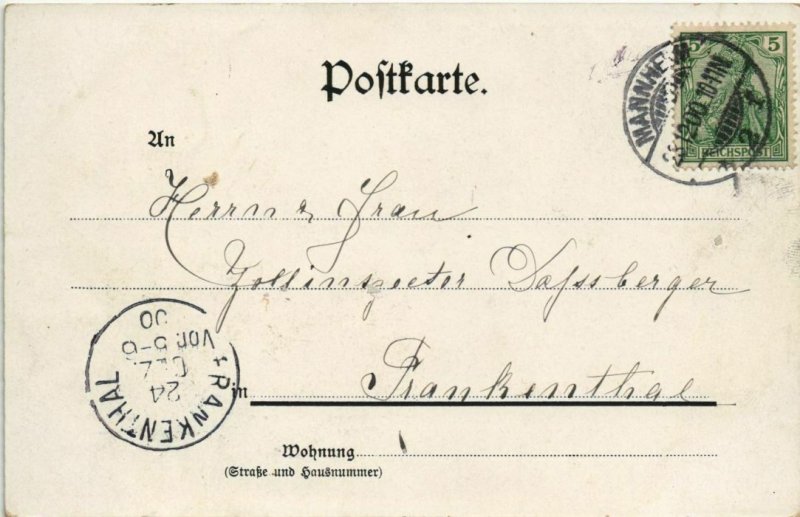 Postkarte.
5 5
REICHSPOST
MANNHEIM
23.12.00.10-11N.
* 2 f
An
Herrn & Frau
Zollinspector Dassberger
in Frankenthal
FRANKENTHAL
24
DEZ.
Vor. 5-6
00
Wohnung
(Straße und Hausnummer)